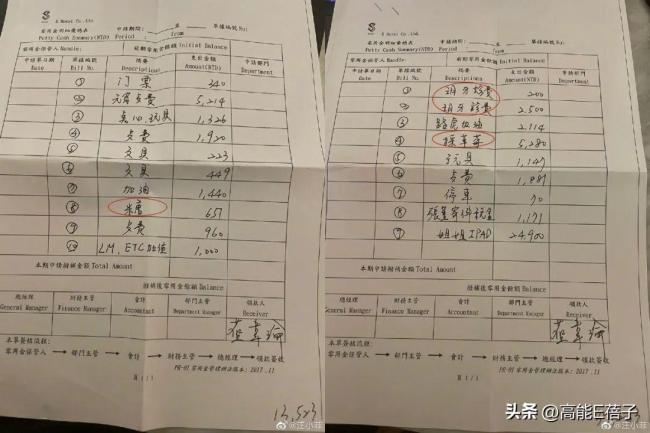 S Hotel Co.,Ltd
零用金明細彙總表
申請期間： 至 單據編號 No:
Petty Cash Summary(NTD) Period : from
零用金保管人 Handle: 前期零用金餘額 Initial Balance
申請單日期 單據編號 摘要 支出金額 申請部門
Date Bill No. Descriptions Amount(NTD) Department
① 門票 340
② 元宵 5,214
③ 玩具 1,326
④ 1,920
⑤ 文具 223
⑥ 文具 449
⑦ 加油 1,440
⑧ 米唐 651
⑨ 960
⑩ LM, ETC 加值 1,000
本期申請撥補金額 Total Amount
撥補後零用金餘額 Balance
總經理 財務主管 會計 部門主管 領款人
General Manager Finance Manager Accountant Department Manager Receiver
本單簽核流程:
零用金保管人 → 部門主管 → 會計 → 財務主管 → 總經理 → 領款簽收
零用金管理辦法版本: 2017.11
頁 1/1
13,523
@汪小菲
S Hotel Co.,Ltd
零用金明細彙總表
申請期間： 至 單據編號 No:
Petty Cash Summary(NTD) Period : from
零用金保管人 Handle: 前期零用金餘額 Initial Balance
申請單日期 單據編號 摘要 支出金額 申請部門
Date Bill No. Descriptions Amount(NTD) Department
① 玥牙診費 200
② 玥牙診費 2,500
③ 路虎加油 2,114
④ 採草莓 5,280
⑤ 玩具 1,147
⑥ 1,881
⑦ 停車 70
⑧ 1,171
⑨ 姐姐 IPAD 24,900
本期申請撥補金額 Total Amount
撥補後零用金餘額 Balance
總經理 財務主管 會計 部門主管 領款人
General Manager Finance Manager Accountant Department Manager Receiver
本單簽核流程:
零用金保管人 → 部門主管 → 會計 → 財務主管 → 總經理 → 領款簽收
零用金管理辦法版本: 2017.11
頁 1/1
頭条 @高能E蓓子
@汪小菲